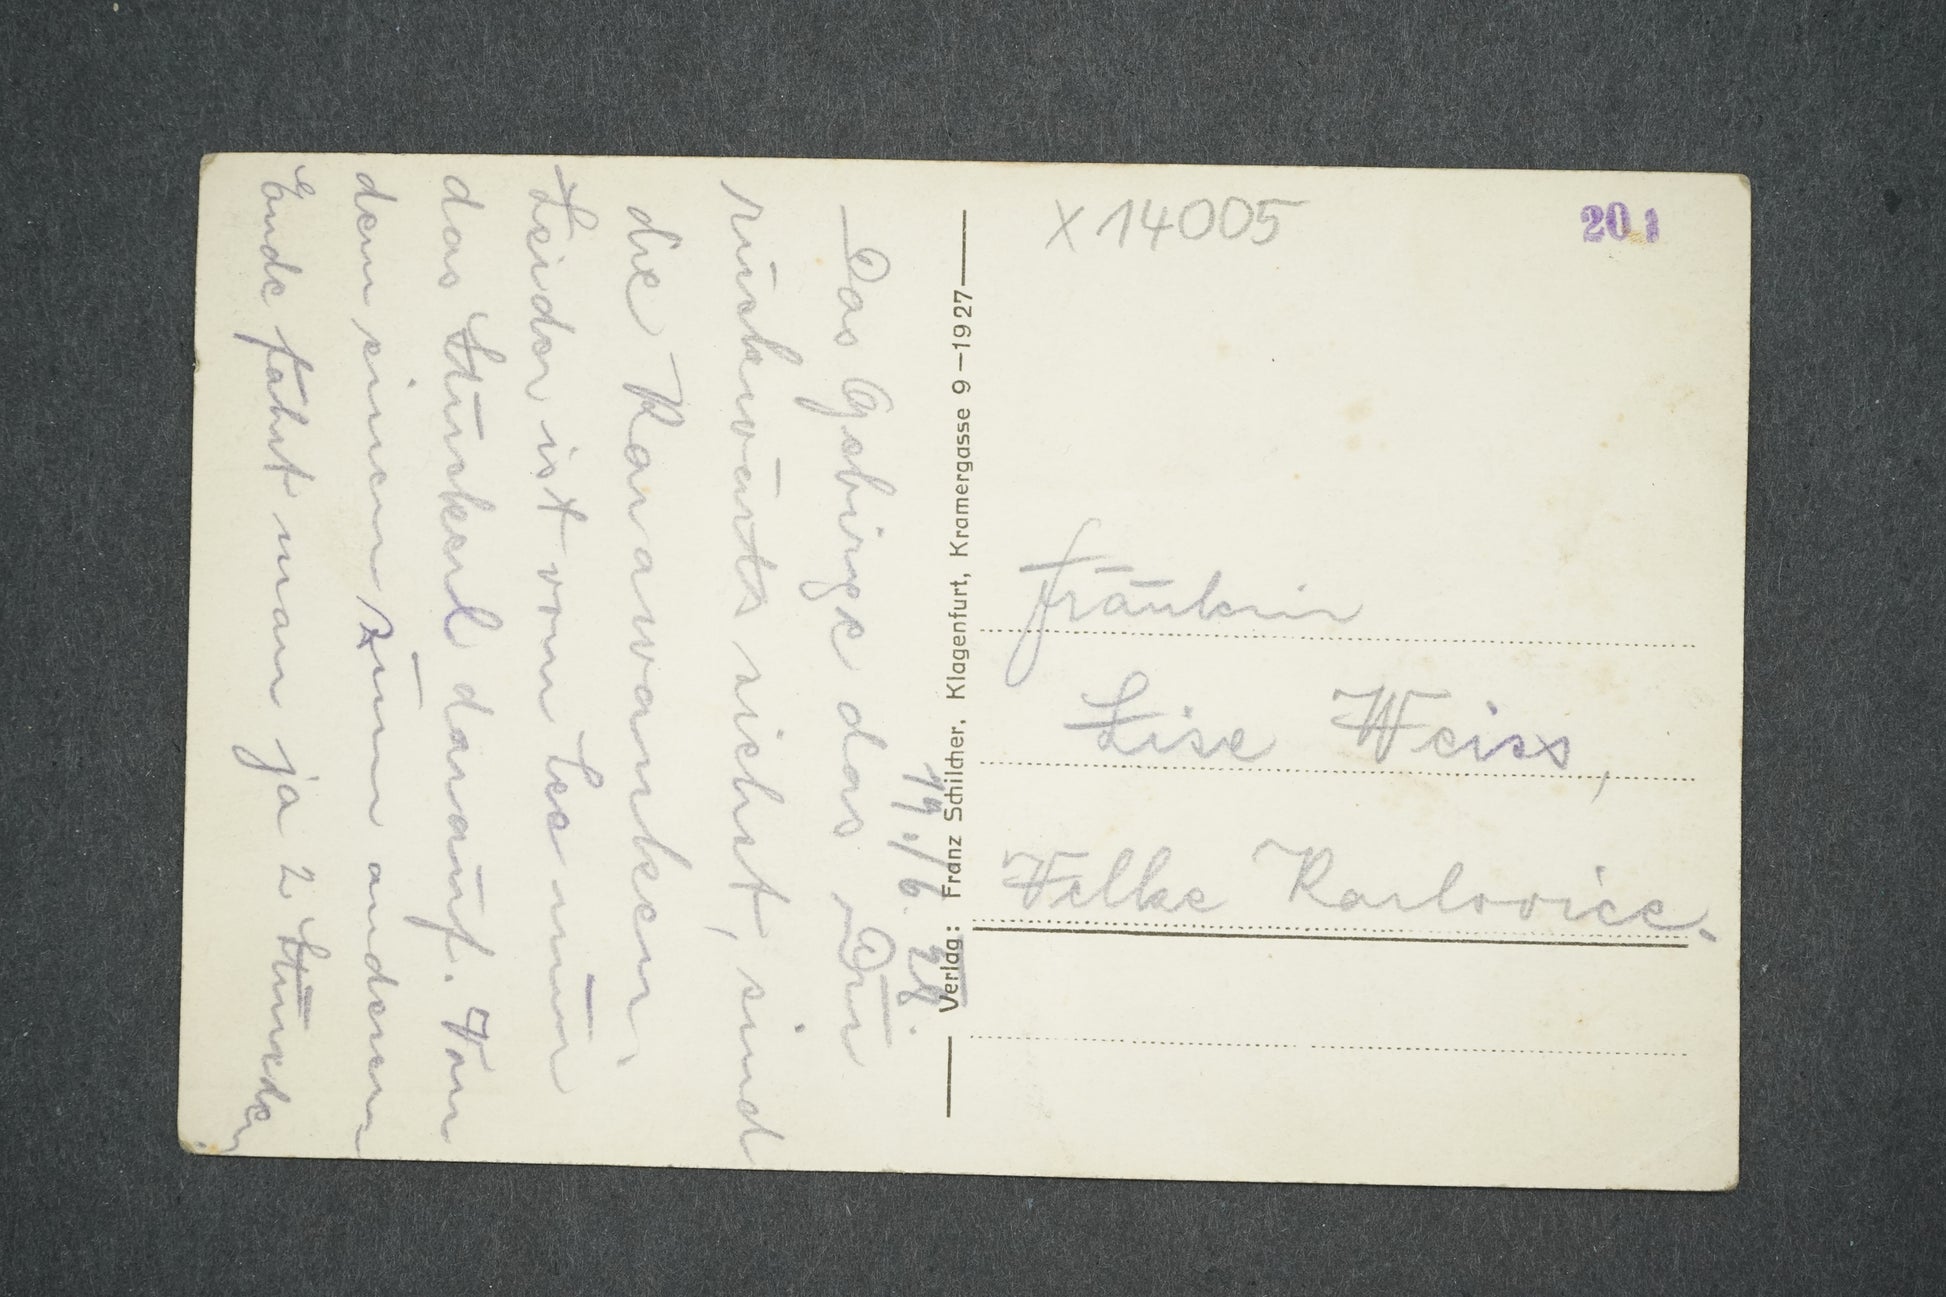 19./6. 28.
Das Gebirge das Du
rückwärts siehst, sind
die Karawanken.
Leider ist vom See nur
das Stückerl darauf. Von
dem einen zum anderen
Ende fährt man ja 2 Stunden
Verlag: Franz Schilcher, Klagenfurt, Kramergasse 9–1927
x 14005
20 1
Fräulein
Lise Weiss,
Velke Karlovice.